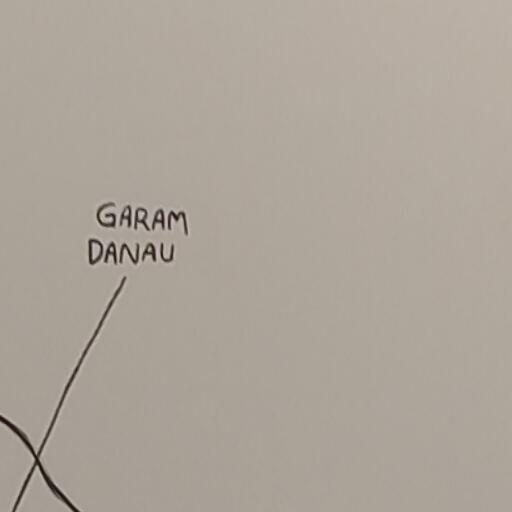 GARAM
DANAU